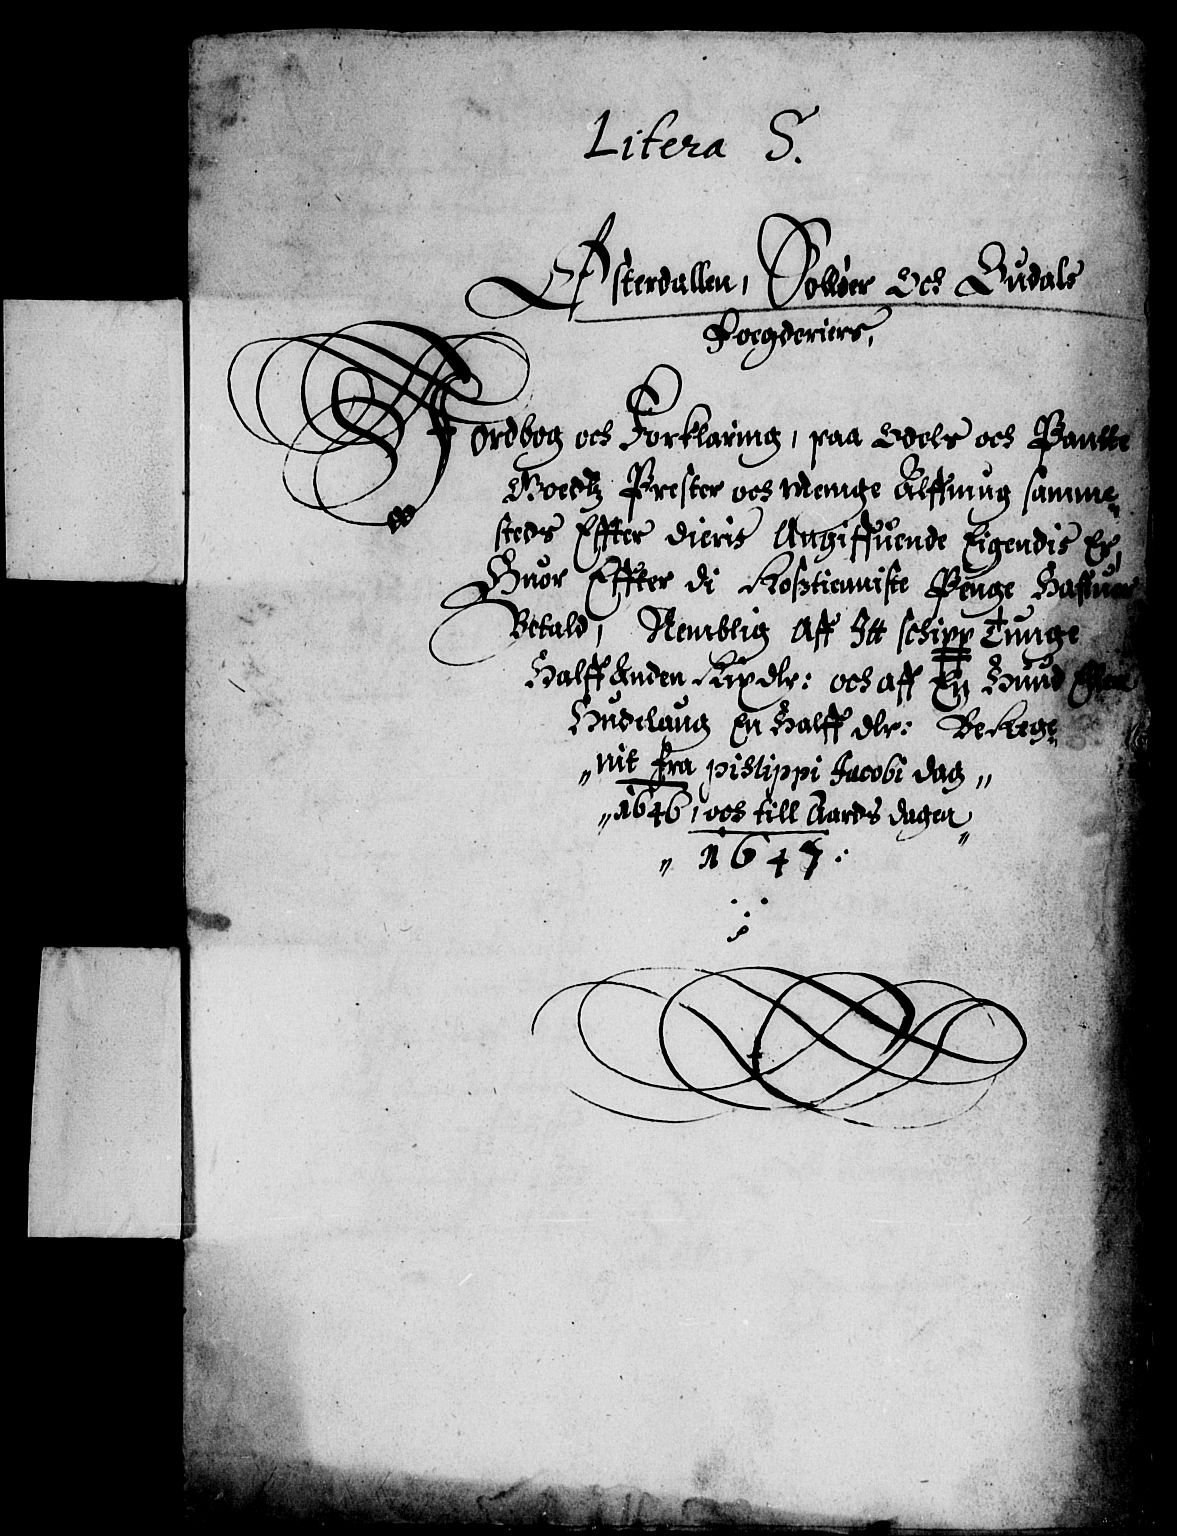 Litera S.
Østerdallen, Soløer och Oudals
Foegderiers,
Jordbog och Forklaring, paa Odels och Pantte
Goedtz Prester och menige Allmug samme„
steds Effter dieris Angiffuende Eigendis Er,
Huor Effter di Kosztienniste Penge Haffuer
Betald, Nemblig Aff Itt schipp Tunge
Halff Anden Rix dlr: och aff En Huud Eller
Hudelaug En Halff dlr: Berege„
„nit fra philippi Jacobi dag„
„1646, och till Aards dagen„
„1647: